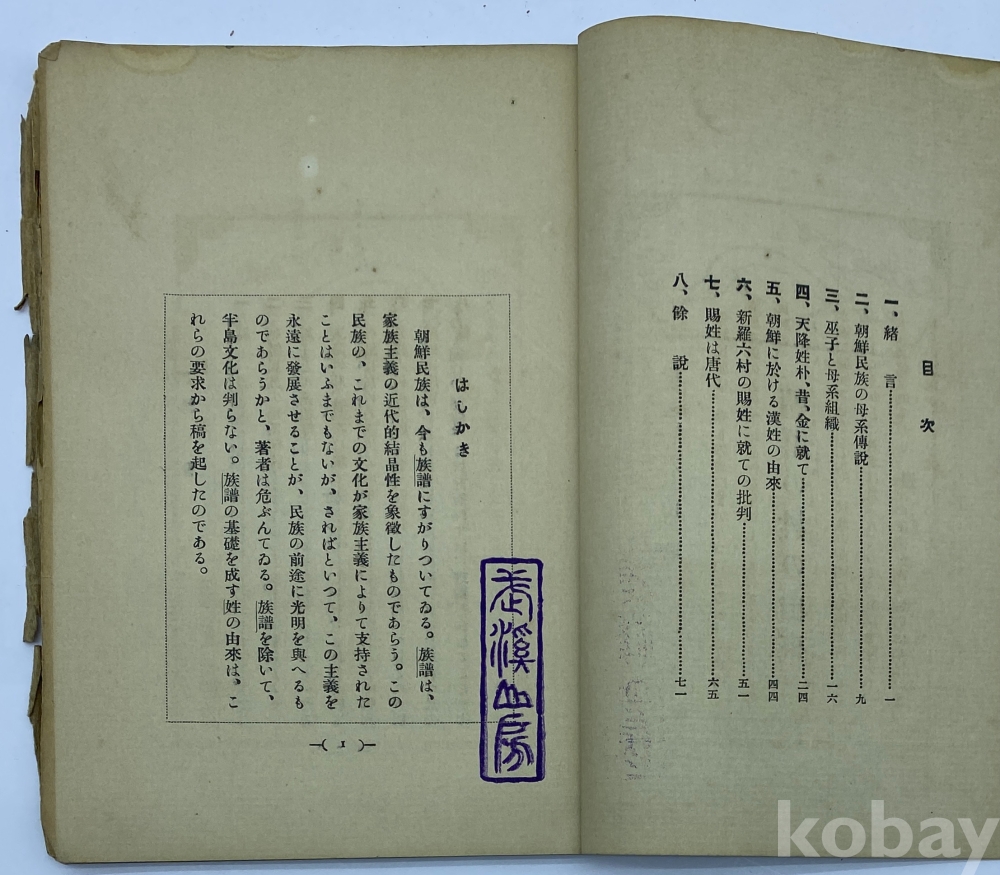 目次
一、緒言………一
二、朝鮮民族の母系傳說………九
三、巫子と母系組織………一六
四、天降姓朴、昔、金に就て………二四
五、朝鮮に於ける漢姓の由來………四四
六、新羅六村の賜姓に就ての批判………五一
七、賜姓は唐代………六五
八、餘說………七一
はしかき
朝鮮民族は、今も族譜にすがりついてゐる。族譜は、
家族主義の近代的結晶性を象徴したものであらう。この
民族の、これまでの文化が家族主義によりて支持された
ことはいふまでもないが、さればといつて、この主義を
永遠に發展させることが、民族の前途に光明を與へるも
のであらうかと、著者は危ぶんてゐる。族譜を除いて、
半島文化は判らない。族譜の基礎を成す姓の由來は、こ
れらの要求から稿を起したのである。
—( 1 )—
溪山房
kobay